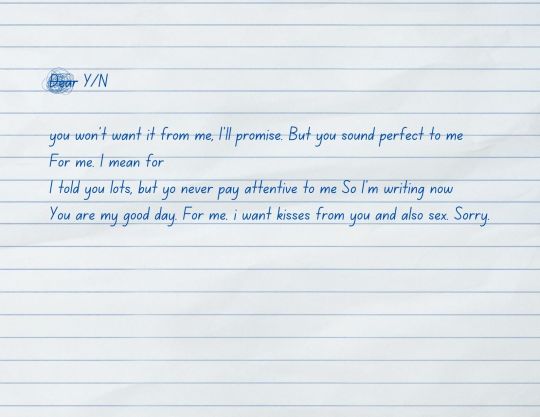 Dear Y/N
you won't want it from me, I'll promise. But you sound perfect to me
For me. I mean for
I told you lots, but yo never pay attentive to me So I'm writing now
You are my good day. For me. i want kisses from you and also sex. Sorry.